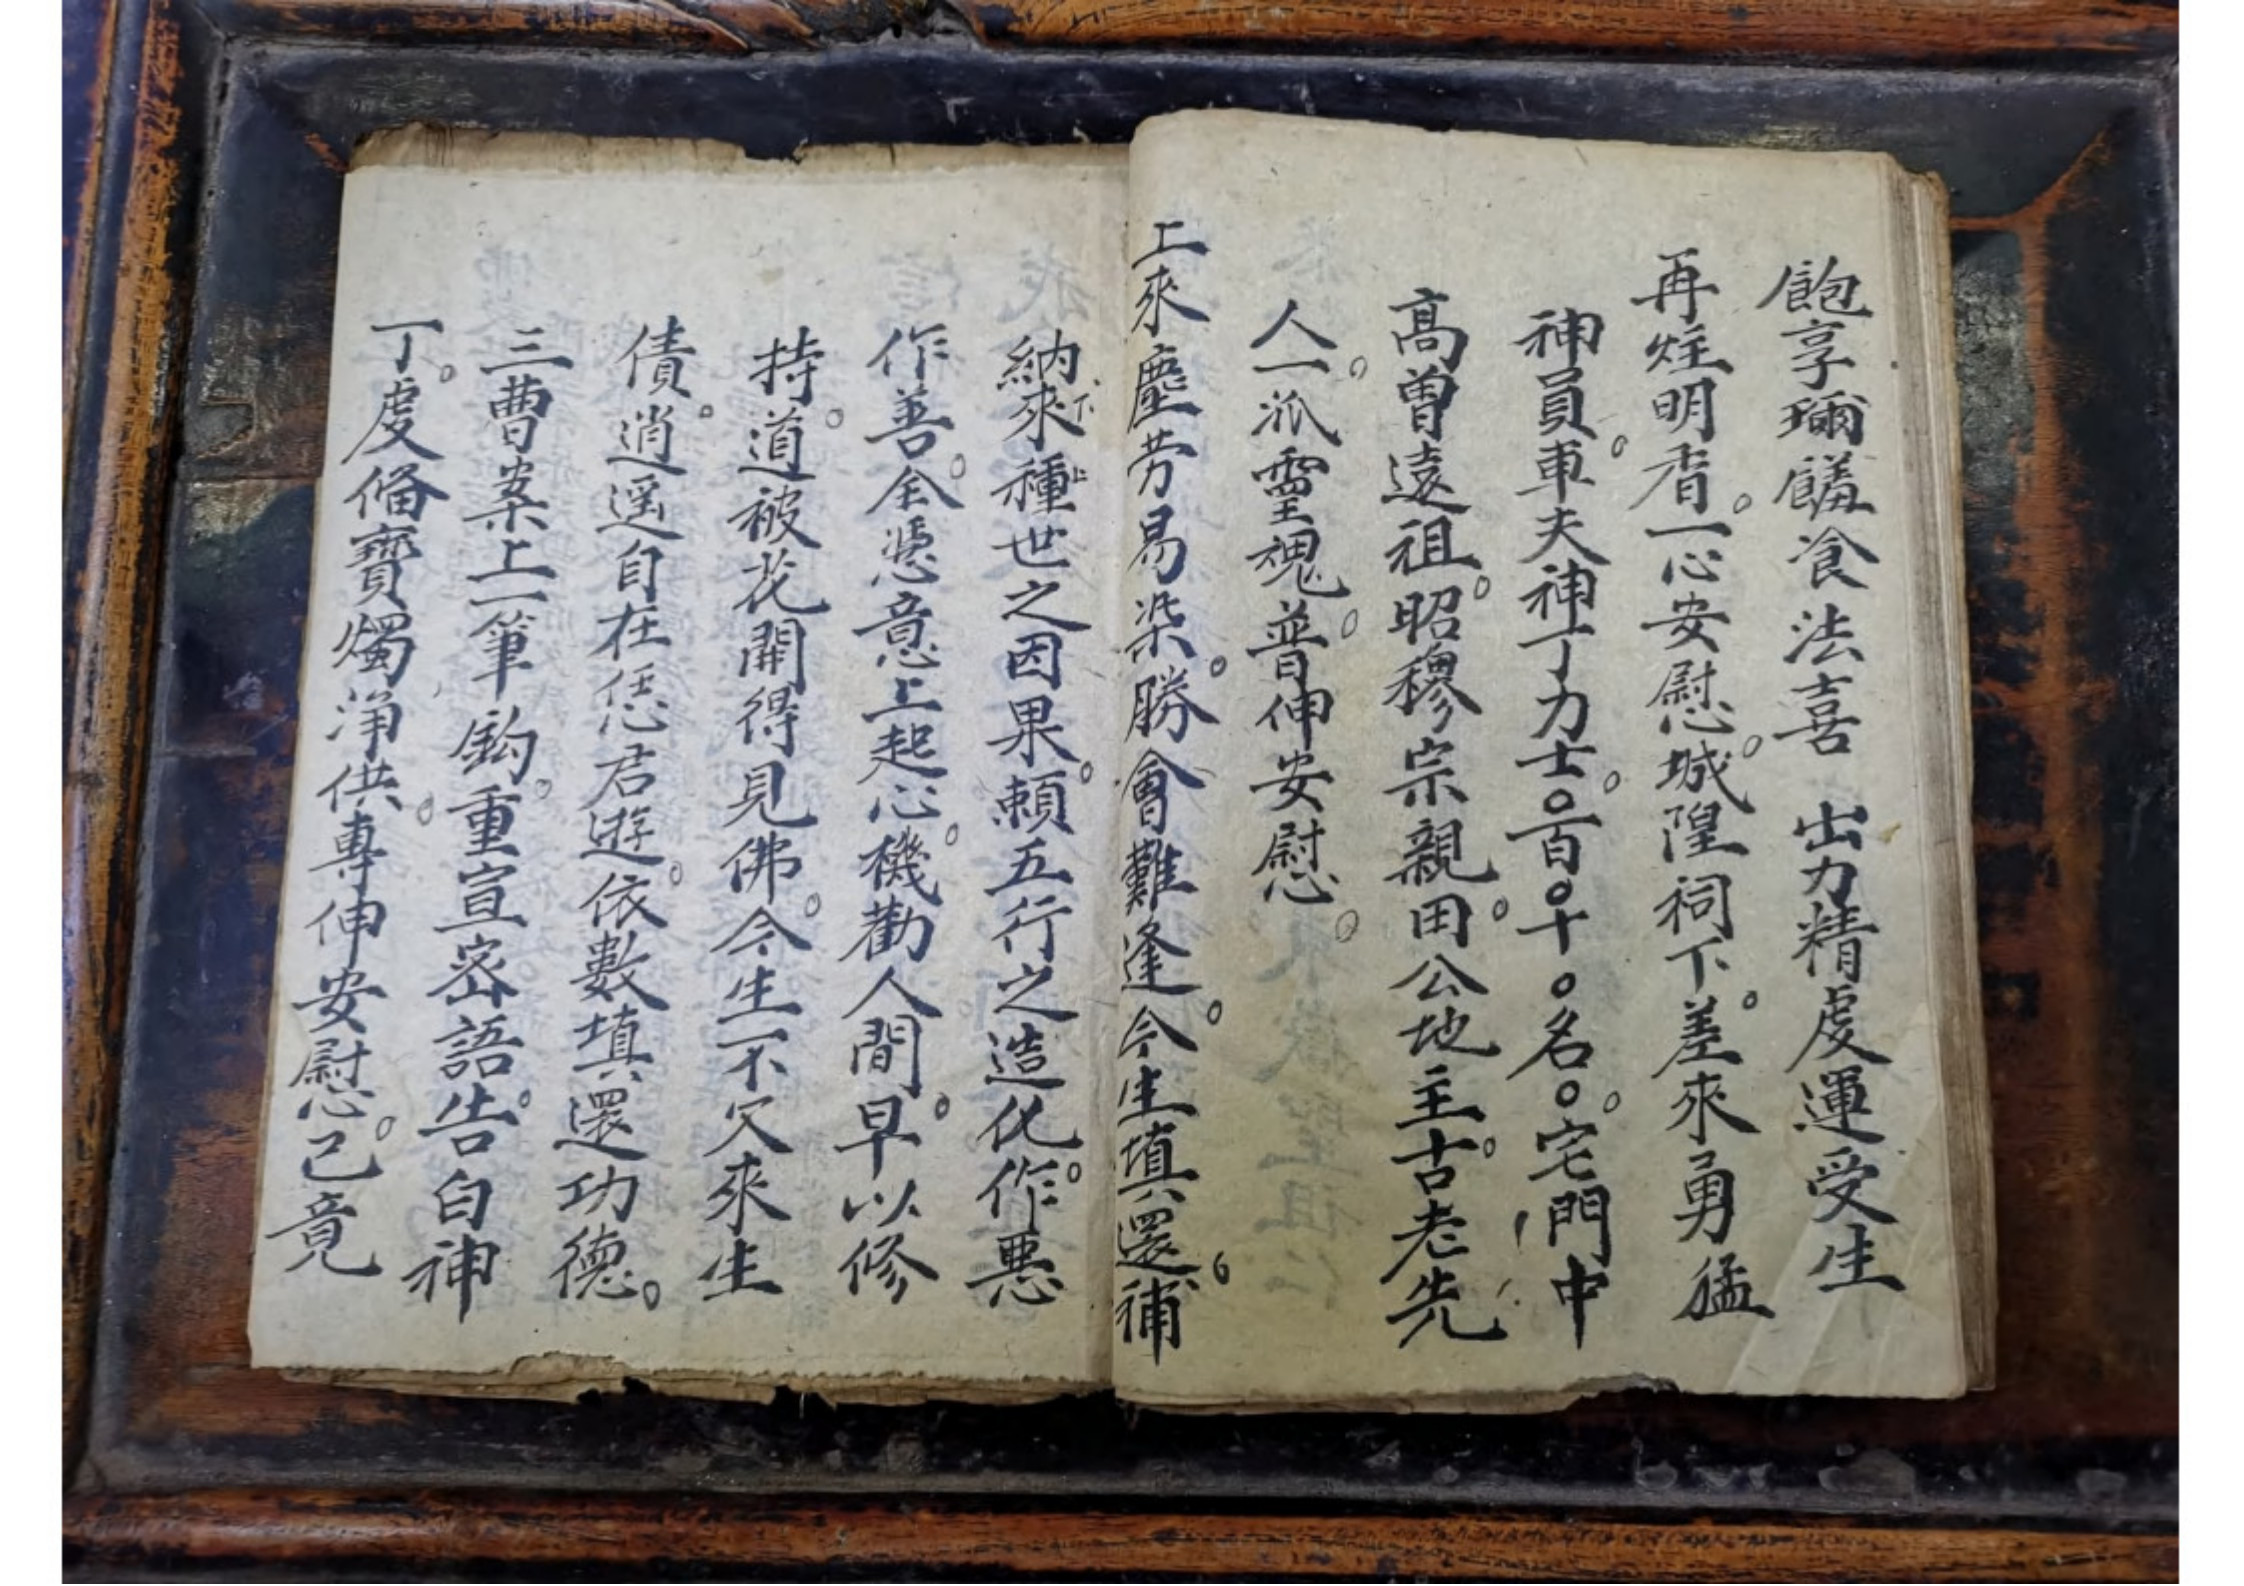 飽享珎饈飡法喜 出力精虔運受生
再炷明香。一心安慰。城隍祠下。差來勇猛
神員。車夫神丁力士。○百○十○名○。宅門中
高曾遠祖。昭穆宗親。田公地主。古老先
人。一派靈魂。普伸安慰。
上來塵劳易染。勝會難逢。今生填還。補
納來種世之因果。頼五行之造化。作惡
作善。全憑意上起心。機勸人間。早以修
持。道被花開得見佛。今生不欠來生
債。逍遥自在恁君遊。依數填還功德。
三曹案上一筆鈎。重宣密語。告白神
丁。虔俻寳燭净供。專伸安慰。已竟